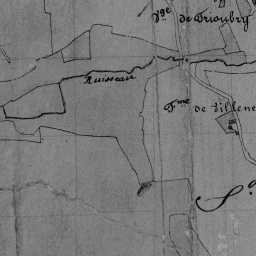 Vge de Trioubry
Ruisseau
Fme de Villene
S